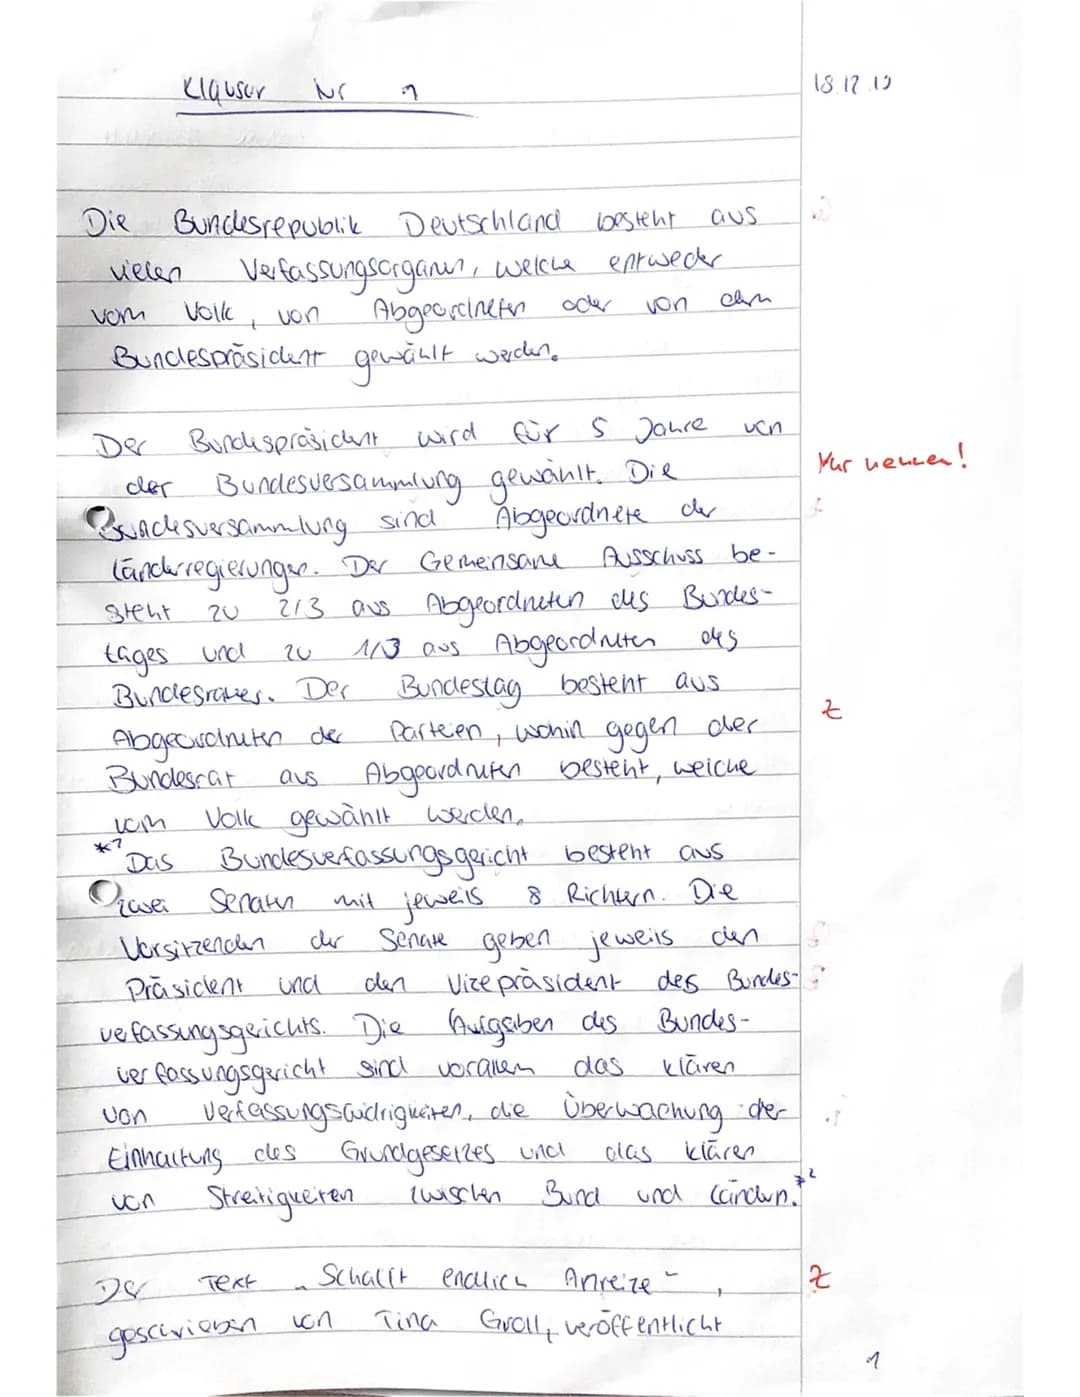 Klausur Nr 1
18.12.19
Die Bundesrepublik Deutschland besteht aus
vielen Verfassungsorganen, welche entweder
vom Volk, von Abgeordneten oder von dem
Bundespräsident gewählt werden.
Der Bundespräsident wird für 5 Jahre von
der Bundesversammlung gewählt. Die
Nur nennen!
Bundesversammlung sind Abgeordnete der
Länderregierungen. Der Gemeinsame Ausschuss be-
steht zu 2/3 aus Abgeordneten des Bundes-
tages und zu 1/3 aus Abgeordneten des
Bundesrates. Der Bundestag besteht aus
Z
Abgeordneten der Parteien, wohin gegen der
Bundesrat aus Abgeordneten besteht, welche
vom Volk gewählt werden.
*1
Das Bundesverfassungsgericht besteht aus
zwei Senaten mit jeweils 8 Richtern. Die
Vorsitzenden der Senate geben jeweils den
Präsident und den Vizepräsident des Bundes-
verfassungsgerichts. Die Aufgaben des Bundes-
verfassungsgericht sind vorallem das klären
von Verfassungswidrigkeiten, die Überwachung der
Einhaltung des Grundgesetzes und das klären
von Streitigkeiten zwischen Bund und Ländern.*2
Der Text "Schafft endlich Anreize",
Z
geschrieben von Tina Groll, veröffentlicht
1